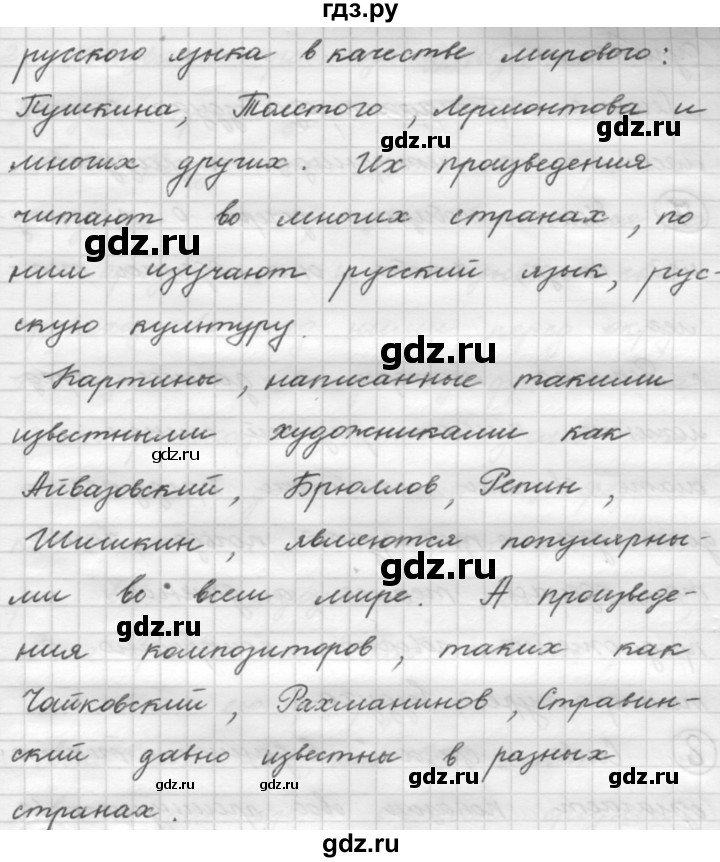 гдз.ру
русского языка в качестве мирового:
Пушкина, Толстого, Лермонтова и
gdz.ru
gdz.ru
многих других. Их произведения
читают во многих странах, по
gdz.ru
ним изучают русский язык, рус-
скую культуру.
gdz.ru
Картины, написанные такими
известными художниками как
gdz.ru
Айвазовский, Брюллов, Репин,
Шишкин, являются популярны-
gdz.ru
ми во всем мире. А произведе-
gdz.ru
ния композиторов, таких как
Чайковский, Рахманинов, Стравин-
ский давно известны в разных
gdz.ru
gdz.ru
gdz.ru
gdz.ru
странах.
gdz.ru